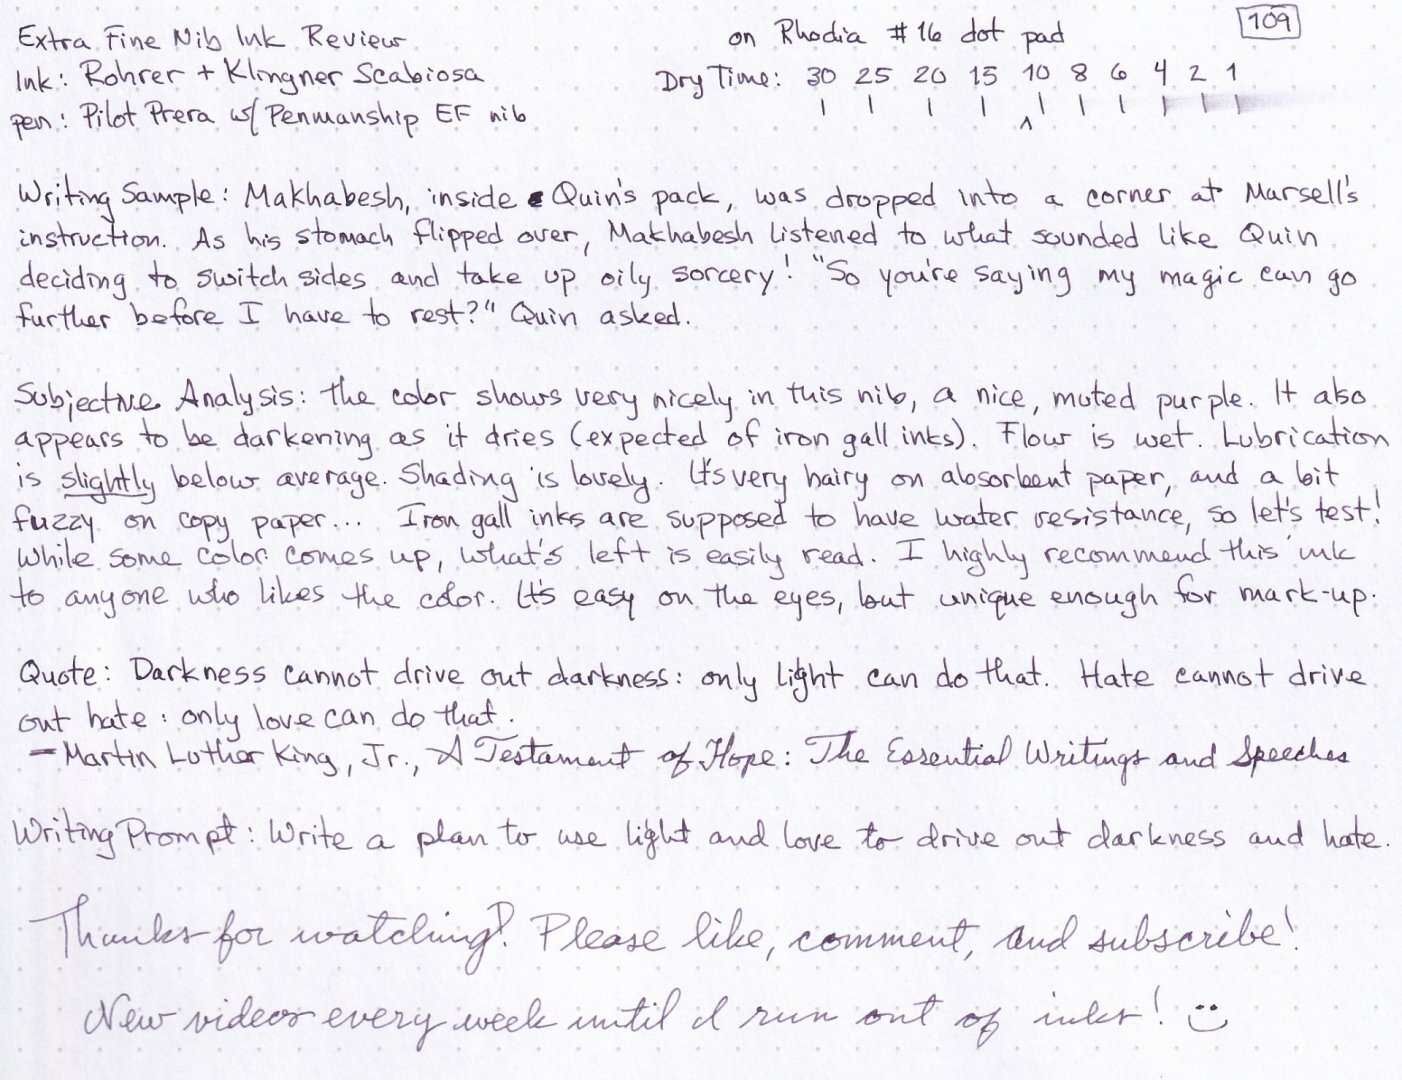 109
Extra Fine Nib Ink Review
on Rhodia #16 dot pad
Ink: Rohrer + Klingner Scabiosa
Dry Time: 30 25 20 15 10 8 6 4 2 1
pen: Pilot Prera w/ Penmanship EF nib
Writing Sample: Makhabesh, inside Quin's pack, was dropped into a corner at Marsell's
instruction. As his stomach flipped over, Makhabesh listened to what sounded like Quin
deciding to switch sides and take up oily sorcery! "So you're saying my magic can go
further before I have to rest?" Quin asked.
Subjective Analysis: The color shows very nicely in this nib, a nice, muted purple. It also
appears to be darkening as it dries (expected of iron gall inks). Flow is wet. Lubrication
is slightly below average. Shading is lovely. It's very hairy on absorbent paper, and a bit
fuzzy on copy paper... Iron gall inks are supposed to have water resistance, so let's test!
While some color comes up, what's left is easily read. I highly recommend this ink
to anyone who likes the color. It's easy on the eyes, but unique enough for mark-up.
Quote: Darkness cannot drive out darkness: only light can do that. Hate cannot drive
out hate: only love can do that.
- Martin Luther King, Jr., A Testament of Hope: The Essential Writings and Speeches
Writing Prompt: Write a plan to use light and love to drive out darkness and hate.
Thanks for watching! Please like, comment, and subscribe!
New videos every week until I run out of inks! :)